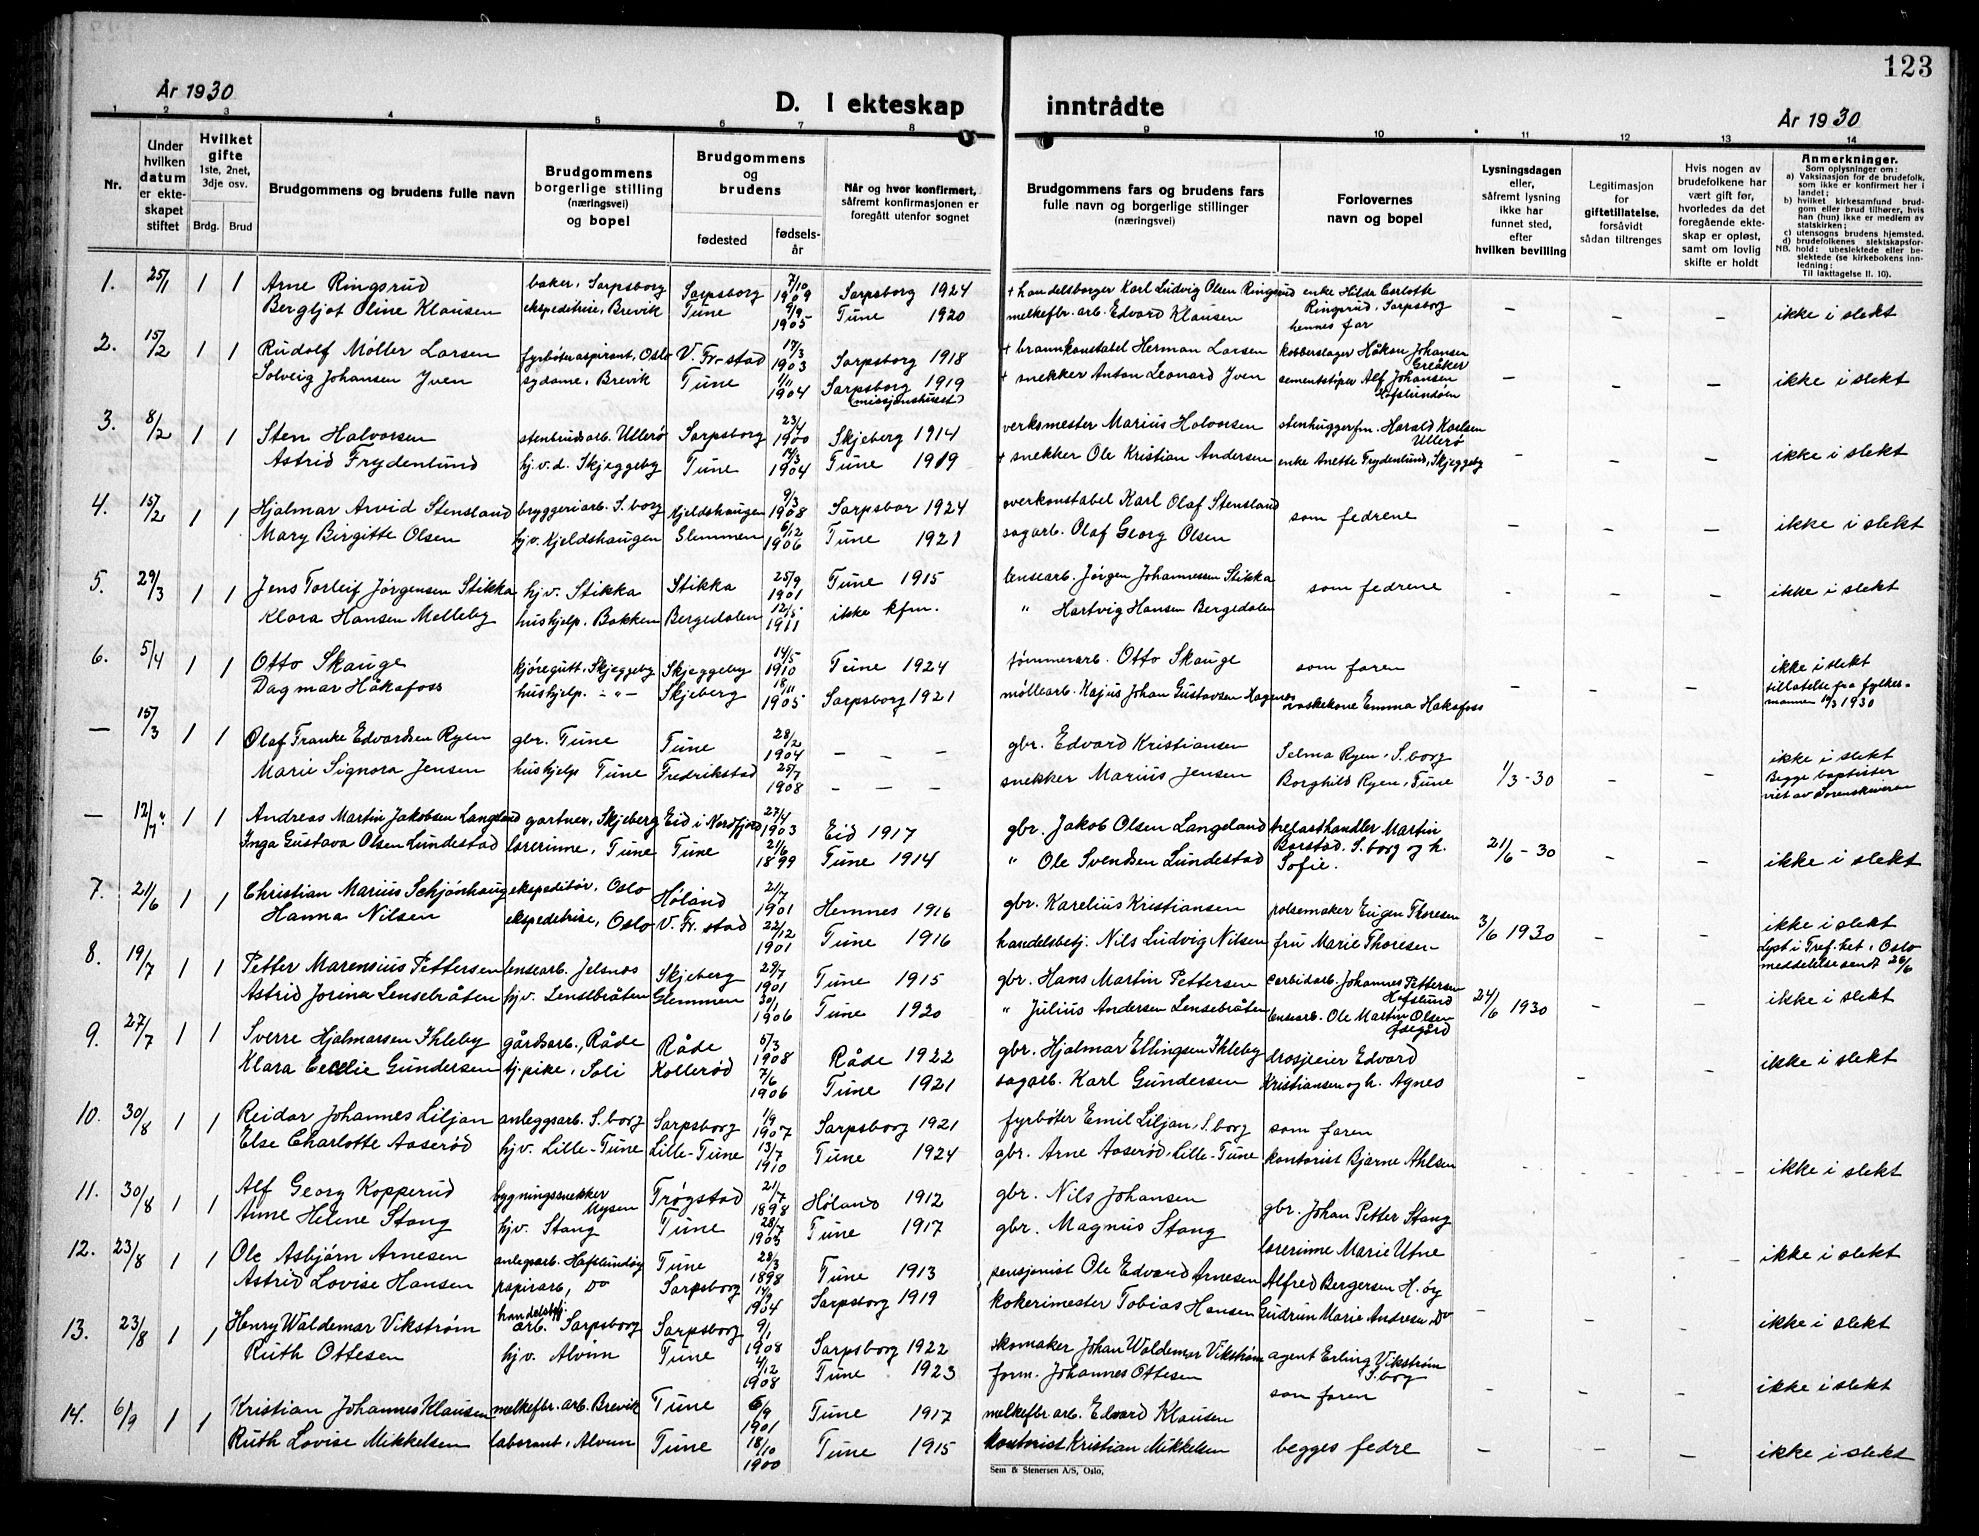 123
År 1930
D. I ekteskap inntrådte
År 1930
1 2 3 4 5 6 7 8 9 10 11 12 13 14
Nr.
Under hvilken datum er ekteskapet stiftet
Hvilket gifte 1ste, 2net, 3dje osv.
Brdg. Brud
Brudgommens og brudens fulle navn
Brudgommens borgerlige stilling (næringsvei) og bopel
Brudgommens og brudens
fødested
fødselsår
Når og hvor konfirmert, såfremt konfirmasjonen er foregått utenfor sognet
Brudgommens fars og brudens fars fulle navn og borgerlige stillinger (næringsvei)
Forlovernes navn og bopel
Lysningsdagen eller, såfremt lysning ikke har funnet sted, efter hvilken bevilling
Legitimasjon for giftetillatelse, forsåvidt sådan tiltrenges
Hvis nogen av brudefolkene har vært gift før, hvorledes da det foregående ekteskap er opløst, samt om lovlig skifte er holdt
Anmerkninger.
Som oplysninger om:
a) Vaksinasjon for de brudefolk, som ikke er konfirmert her i landet;
b) hvilket kirkesamfund brudgom eller brud tilhører, hvis han (hun) ikke er medlem av statskirken;
c) utensogns brudens hjemsted.
d) brudefolkenes slektskapsforhold: ubeslektede eller beslektede (se kirkebokens innledning:
NB.
Til iakttagelse II. 10).
1. 25/1 1 1 Arne Ringsrud baker, Sarpsborg Sarpsborg 7/10 1909 Sarpsborg 1924 + handelsborger Karl Ludvig Olsen Ringsrud enke Hilda Carlotte Ringsrud, Sarpsborg – – – ikke i slekt
Bergljot Oline Klausen ekspeditrise, Brevik Tune 9/9 1905 Tune 1920 melkefbr. arb. Edvard Klausen hennes far
2. 15/2 1 1 Rudolf Møller Larsen fyrbøteraspirant, Oslo V. Fr.stad 17/3 1903 Sarpsborg 1918 + brannkonstabel Herman Larsen kobberslager Håkon Johansen Greåker – – – ikke i slekt
Solveig Johansen Yven sydame, Brevik Tune 1/11 1904 Sarpsborg 1919 (missjonshuset) + snekker Anton Leonard Yven sementstøper Alf Johansen Hafslundøen
3. 8/2 1 1 Sten Halvorsen stenbrudsarb. Ullerø Sarpsborg 23/4 1900 Skjeberg 1914 verksmester Marius Halvorsen stenhuggerfm. Harald Karlsen Ullerø – – – ikke i slekt
Astrid Frydenlund hj.v.d. Skjeggeby Tune 14/3 1904 Tune 1919 + snekker Ole Kristian Andersen enke Anette Frydenlund, Skjeggeby
4. 15/2 1 1 Hjalmar Arvid Stensland bryggeriarb. S.borg Kjeldshaugen 9/3 1908 Sarpsbor 1924 overkonstabel Karl Olaf Stensland som fedrene – – – ikke i slekt
Mary Birgitte Olsen hj.v. Kjeldshaugen Glemmen 6/12 1906 Tune 1921 sagarb. Olaf Georg Olsen
5. 29/3 1 1 Jens Torleif Jørgensen Stikka hj.v. Stikka Stikka 25/9 1901 Tune 1915 lensearb. Jørgen Johannessen Stikka som fedrene – – – ikke i slekt
Klara Hansen Melleby hushjelp. Bakken Bergedalen 12/5 1911 ikke kfm. " Hartvig Hansen Bergedalen
6. 5/4 1 1 Otto Skauge kjøregutt, Skjeggeby Skjeggeby 14/5 1910 Tune 1924 tømmerarb. Otto Skauge som faren – – – ikke i slekt tillatelse fra fylkesmannen 1930
Dagmar Håkafoss hushjelp. – " – Skjeberg 18/11 1905 Sarpsborg 1921 møllearb. Kajus Johan Gustavsen Hagenes vaskekone Emma Hakafoss
– 15/3 1 1 Olaf Franke Edvardsen Ryen gbr. Tune Tune 28/2 1904 – – – gbr. Edvard Kristiansen Selma Ryen, S.borg 1/3-30 – – ikke i slekt Begge baptister viet av Sorenskriveren
Marie Signora Jensen hushjelp Tune Fredrikstad 25/7 1908 – – – snekker Marius Jensen Borghild Ryen, Tune
– 12/7 1 1 Andreas Martin Jakobsen Langeland gartner, Skjeberg Eid i Nordfjord 27/4 1903 Eid 1917 gbr. Jakob Olsen Langeland trelasthandler Martin Borstad, S.borg og h. Sofie. 21/6-30 – – ikke i slekt
Inga Gustava Olsen Lundestad lærerinne, Tune Tune 21/6 1899 Tune 1914 " Ole Svendsen Lundestad
7. 21/6 1 1 Christian Marius Schjønhaug ekspeditør, Oslo Høland 21/7 1901 Hemnes 1916 gbr. Karelius Kristiansen pølsemaker Eugen Thoresen 3/6 1930 – – ikke i slekt lyst i Tref.ket, Oslo meddelelse sendt 26/6
Hanna Nilsen ekspeditrise, Oslo V. Fr.stad 22/12 1901 Tune 1916 handelsbetj. Nils Ludvig Nilsen fru Marie Thoresen
8. 19/7 1 1 Petter Marensius Pettersen lensearb. Jelsnes Skjeberg 29/7 1901 Tune 1915 gbr. Hans Martin Pettersen carbidarb. Johannes Pettersen Hafslund 24/6 1930 – – ikke i slekt
Astrid Jorina Lensebråten hjv. Lensebråten Glemmen 30/1 1906 Tune 1920 " Julius Andersen Lensebråten lensearb. Ole Martin Olsen Åsegård
9. 27/7 1 1 Sverre Hjalmarsen Ihleby gårdsarb., Råde Råde 5/3 1908 Råde 1922 gbr. Hjalmar Ellingsen Ihleby drosjeeier Edvard – – ikke i slekt
Klara Cecilie Gundersen tj.pike, Soli Kollerød 7/6 1906 Tune 1921 sagarb. Karl Gundersen Kristiansen og h. Agnes
10. 30/8 1 1 Reidar Johannes Liljan anleggsarb. S.borg Sarpsborg 1/9 1907 Sarpsborg 1921 fyrbøter Emil Liljan, S.borg som faren – – – ikke i slekt
Else Charlotte Aaserød hjv. Lille-Tune Lille-Tune 13/7 1910 Tune 1924 gbr. Arne Aaserød, Lille-Tune kontorist Bjarne Ahlsen
11. 30/8 1 1 Alf Georg Kopperud bygningssnekker Mysen Trøgstad 21/7 1898 Høland 1912 gbr. Nils Johansen gbr. Johan Petter Stang – – – ikke i slekt
Anne Helene Stang hjv. Stang Tune 28/7 1903 Tune 1917 gbr. Magnus Stang lærerinne Marie Utne
12. 23/8 1 1 Ole Asbjørn Arnesen anlegsarb. Hafslundøy Tune 28/3 1898 Tune 1913 pensjonist Ole Edvard Arnesen Alfred Bergersen H.øy – – – ikke i slekt
Astrid Lovise Hansen papirarb, do Sarpsborg 14/9 1904 Sarpsborg 1919 kokerimester Tobias Hansen Gudrun Marie Andresen, do
13. 23/8 1 1 Henry Waldemar Vikstrøm handelsbetj. arb. Sarpsborg Sarpsborg 9/1 1908 Sarpsborg 1922 skomaker Johan Waldemar Vikstrøm agent Erling Vikstrøm S.borg – – – ikke i slekt
Ruth Ottesen hjv. Alvim Tune 4/12 1908 Tune 1923 form. Johannes Ottesen som faren
14. 6/9 1 1 Kristian Johannes Klausen melkefbr. arb. Brevik Tune 6/9 1901 Tune 1917 melkefbr arb. Edvard Klausen begges fedre – – – ikke i slekt
Ruth Lovise Mikkelsen laborant, Alvim Tune 18/10 1900 Tune 1915 kontorist Kristian Mikkelsen
Sem & Stenersen A/S, Oslo,